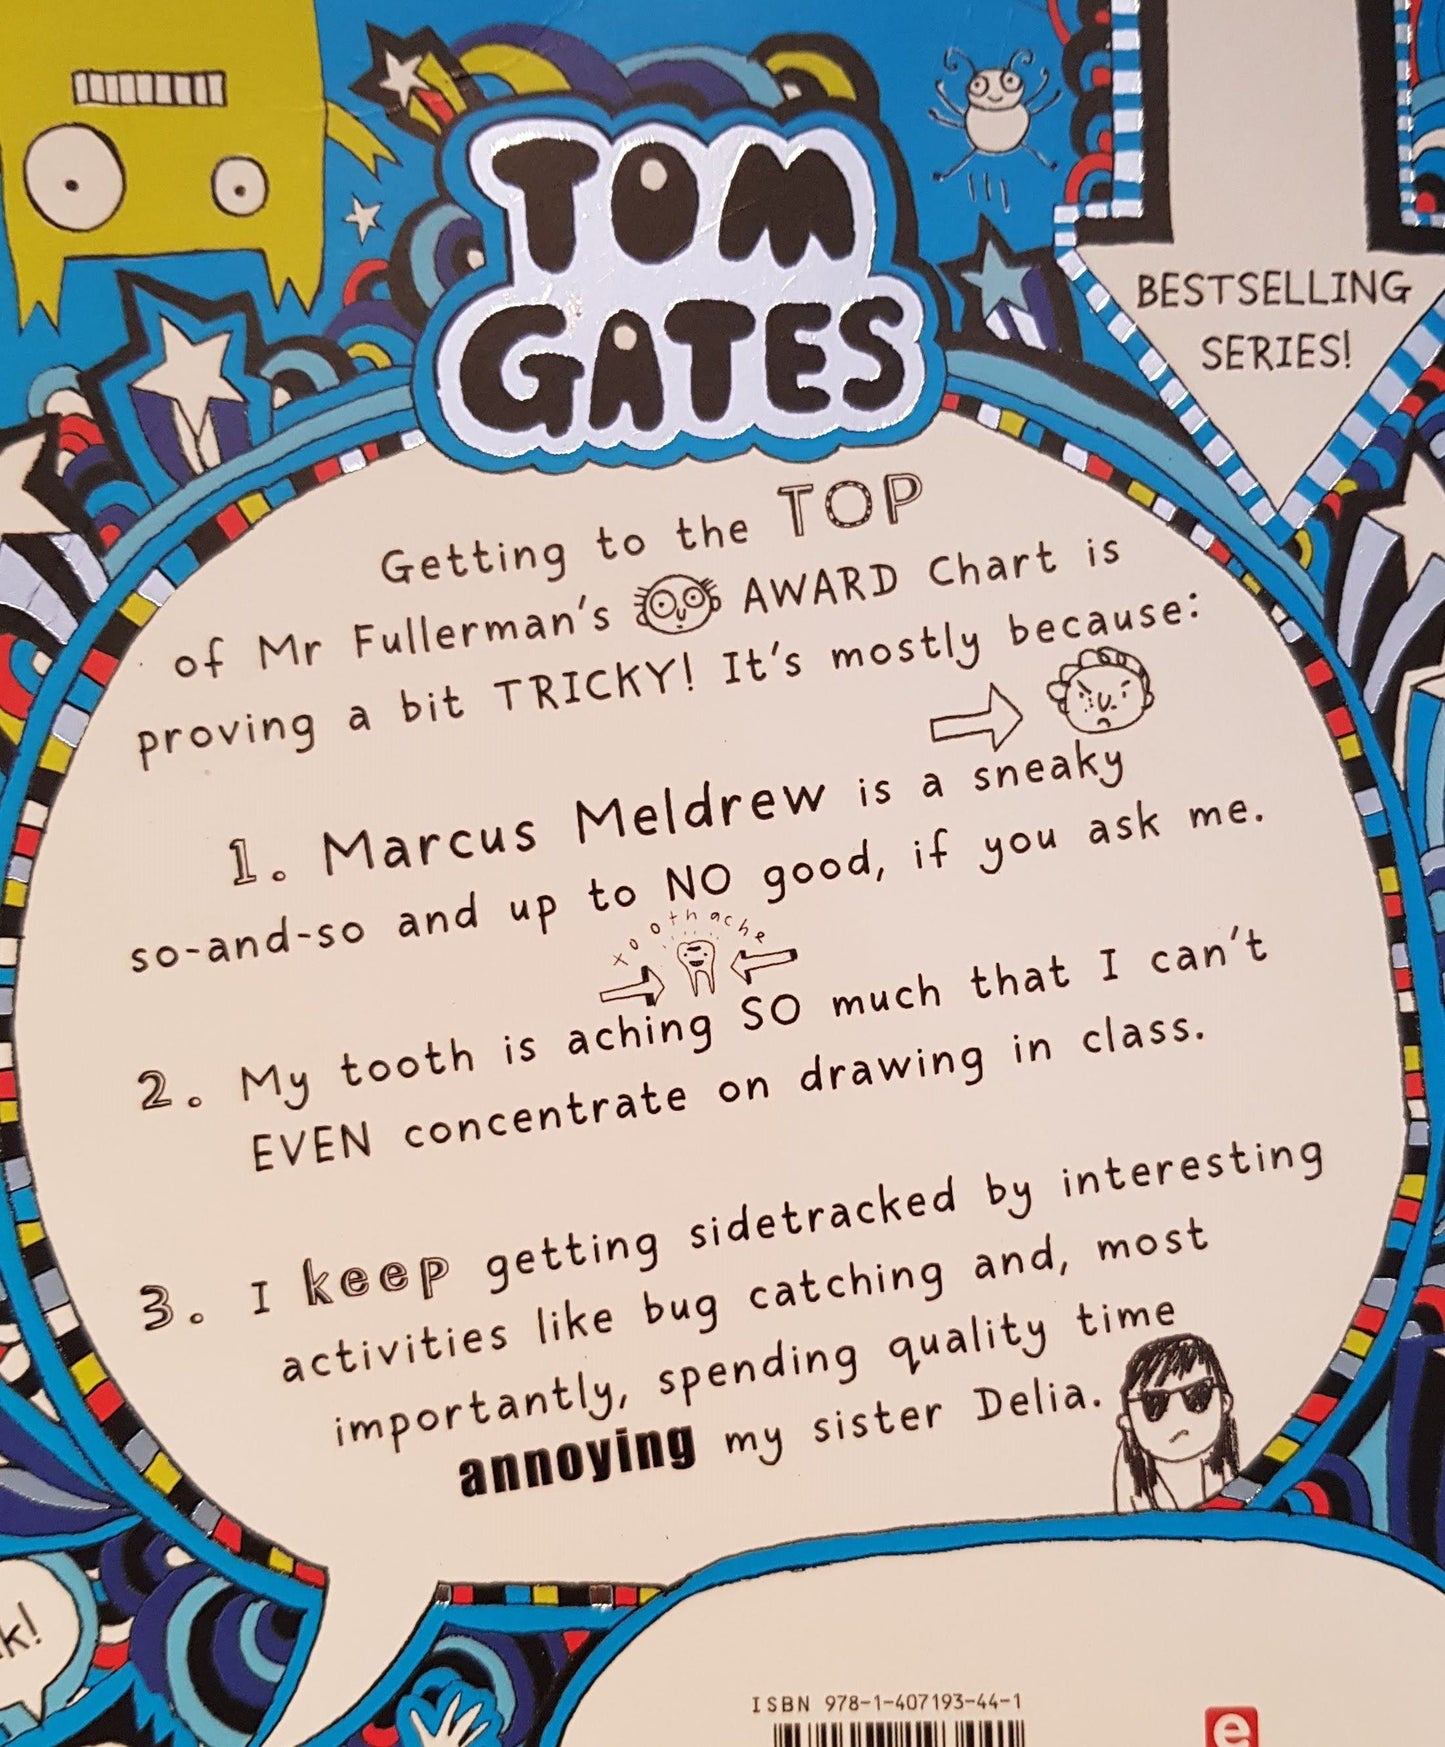 TOM
GATES
BESTSELLING
SERIES!
Getting to the TOP
of Mr Fullerman's AWARD Chart is
proving a bit TRICKY! It's mostly because:
1. Marcus Meldrew is a sneaky
so-and-so and up to NO good, if you ask me.
toothache
2. My tooth is aching SO much that I can't
EVEN concentrate on drawing in class.
3. I keep getting sidetracked by interesting
activities like bug catching and, most
importantly, spending quality time
annoying my sister Delia.
ISBN 978-1-407193-44-1
e